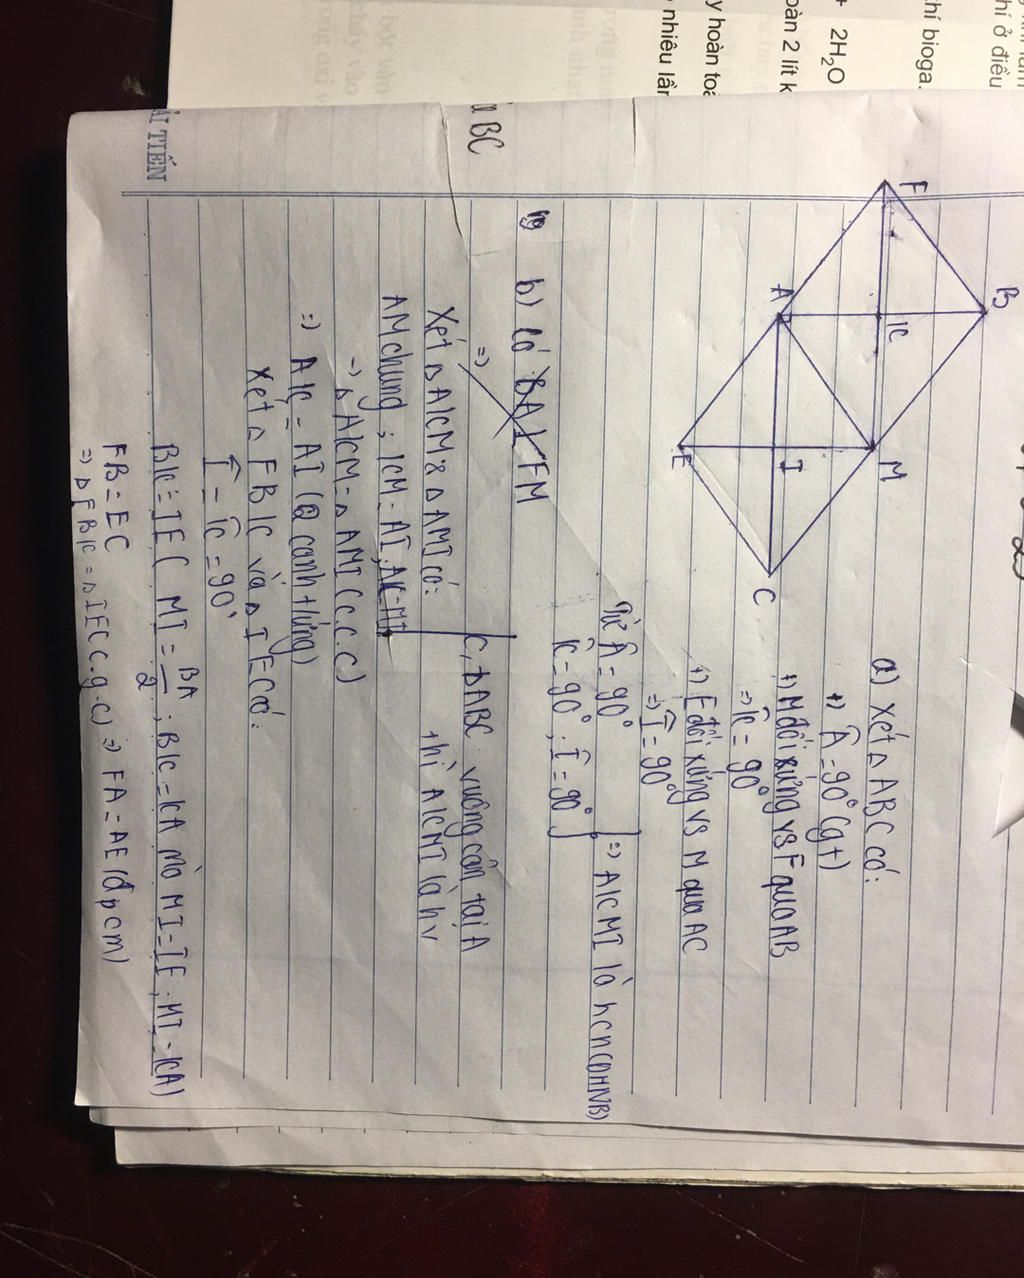 hí ở điều
hí bioga.
+ 2H₂O
oàn 2 lít k
y hoàn toà
nhiêu lần
BC
ẢI TIẾN
F
B
K
A
M
I
E
C
a) Xét △ ABC có:
+) Â = 90° (gt)
+) M đối xứng vs F qua AB
=> K̂ = 90°
+) E đối xứng vs M qua AC
=> Î = 90°
Từ Â = 90°
K̂ = 90° ; Î = 90° => AKMI là hcn (DHNB)
b) Có BA ⊥ FM
=>
Xét △ AKM & △ AMI có:
AM chung ; KM = AI, AK = MI
-> △ AKM = △ AMI (c.c.c)
=> AK = AI (2 cạnh tứng)
Xét △ FBK và △ IEC có:
Î = K̂ = 90°
BK = IE ( MI = BA/2 ; BK = KA mà MI = IE ; MI = KA)
FB = EC
=> △ FBK = △ IEC c.g.c) => FA = AE (đpcm)
C, △ABC vuông cân tại A
thì AKMI là hv